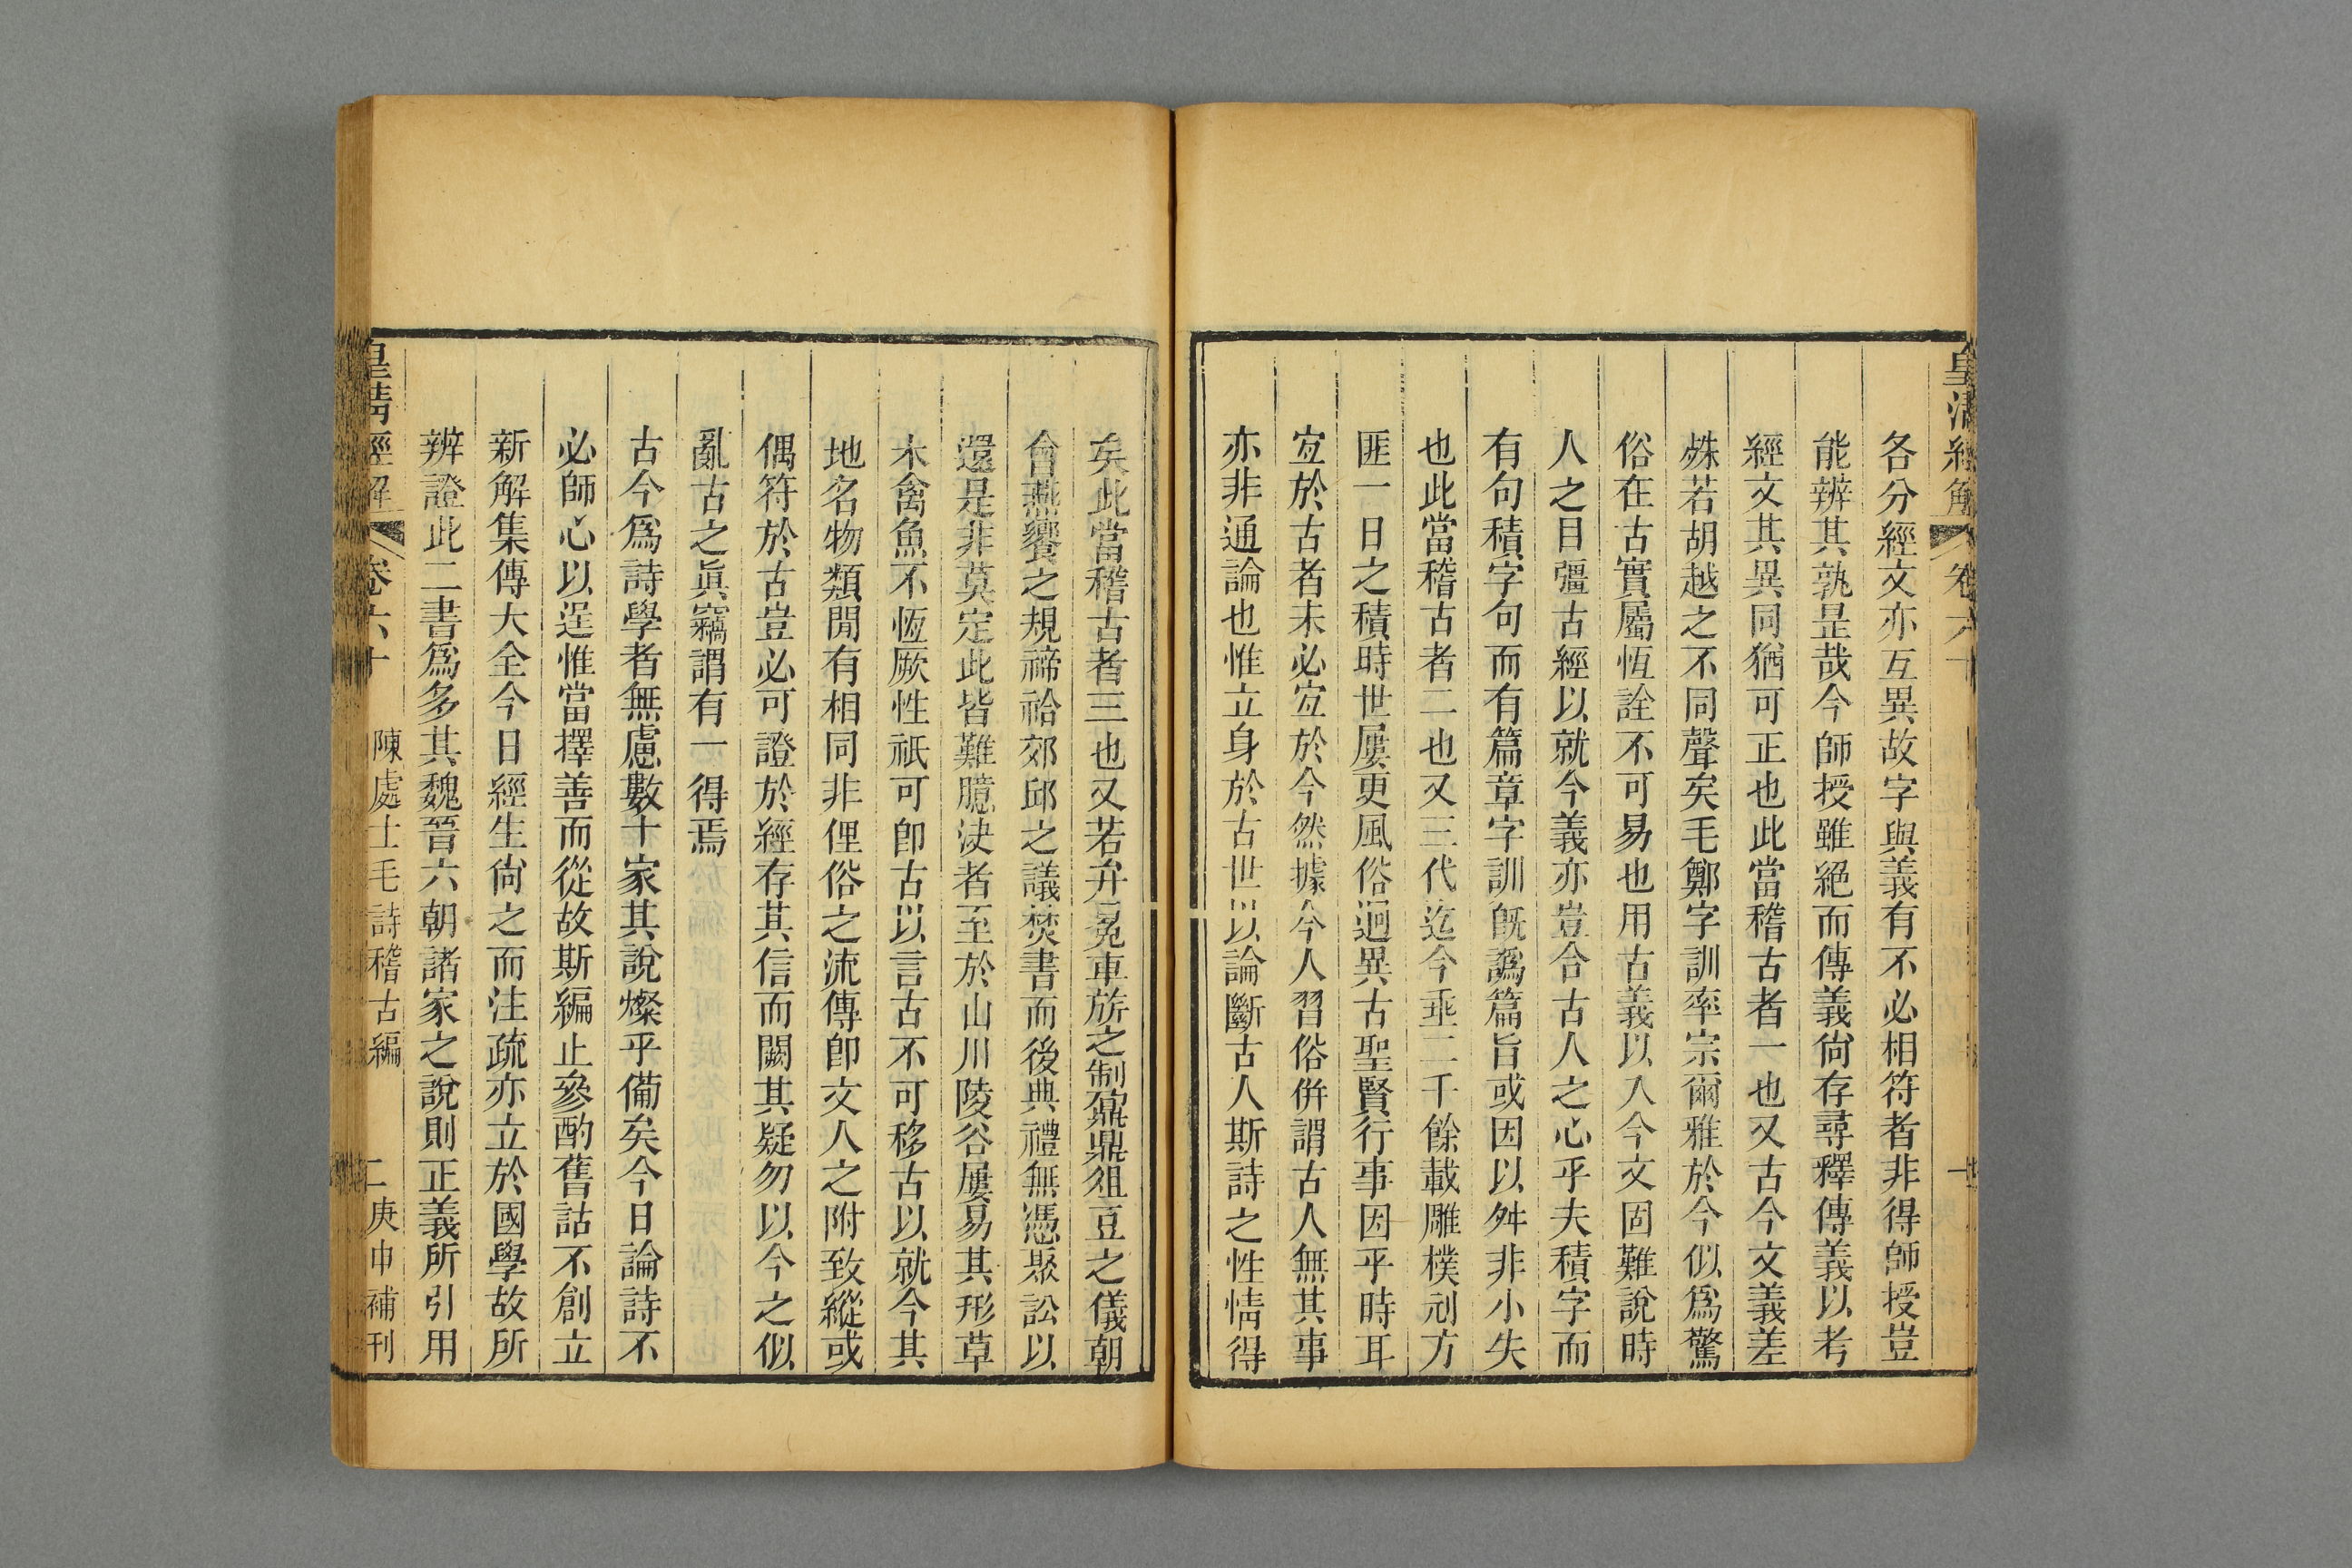 皇清經解
卷六十
一
各分經文亦互異故字與義有不必相符者非得師授豈
能辨其孰是哉今師授雖絕而傳義尙存尋釋傳義以考
經文其異同猶可正也此當稽古者一也又古今文義差
殊若胡越之不同聲矣毛鄭字訓率宗爾雅於今似爲驚
俗在古實屬恆詮不可易也用古義以入今文固難說時
人之目彊古經以就今義亦豈合古人之心乎夫積字而
有句積字句而有篇章字訓旣譌篇旨或因以舛非小失
也此當稽古者二也又三代迄今垂二千餘載雕樸刓方
匪一日之積時世屢更風俗迥異古聖賢行事因乎時耳
宐於古者未必宐於今然據今人習俗倂謂古人無其事
亦非通論也惟立身於古世以論斷古人斯詩之性情得
矣此當稽古者三也又若弁冕車旂之制鼐鼎俎豆之儀朝
會燕饗之規禘祫郊邱之議焚書而後典禮無憑聚訟以
還是非莫定此皆難臆決者至於山川陵谷屢易其形草
木禽魚不恆厥性祇可卽古以言古不可移古以就今其
地名物類閒有相同非俚俗之流傳卽文人之附致縱或
偶符於古豈必可證於經存其信而闕其疑勿以今之似
亂古之眞竊謂有一得焉
古今爲詩學者無慮數十家其說燦乎備矣今日論詩不
必師心以逞惟當擇善而從故斯編止參酌舊詁不創立
新解集傳大全今日經生尙之而注疏亦立於國學故所
辨證此二書爲多其魏晉六朝諸家之說則正義所引用
皇清經解
卷六十
陳處士毛詩稽古編
二
庚申補刊